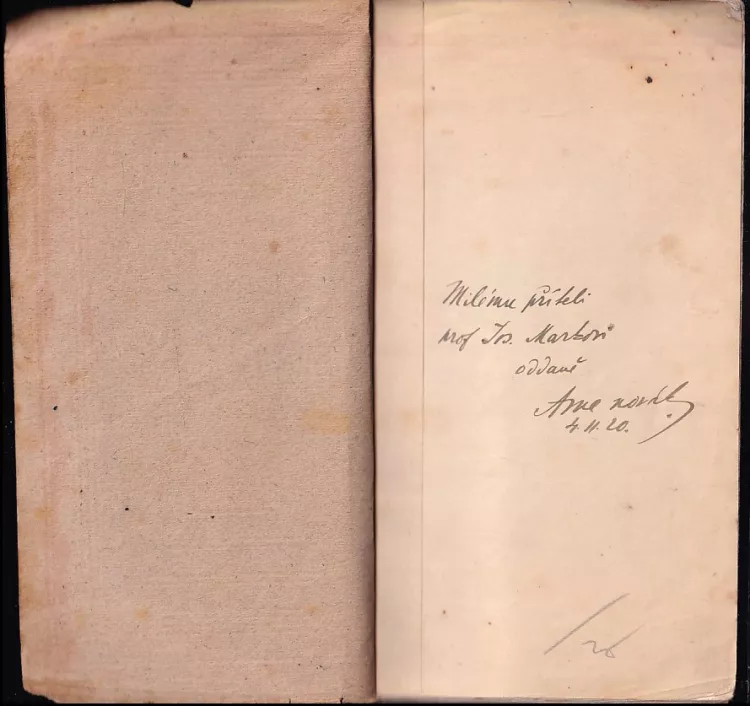 Milému příteli
prof Jos. Markovi
oddaně
Arne Novák
4. II. 20.